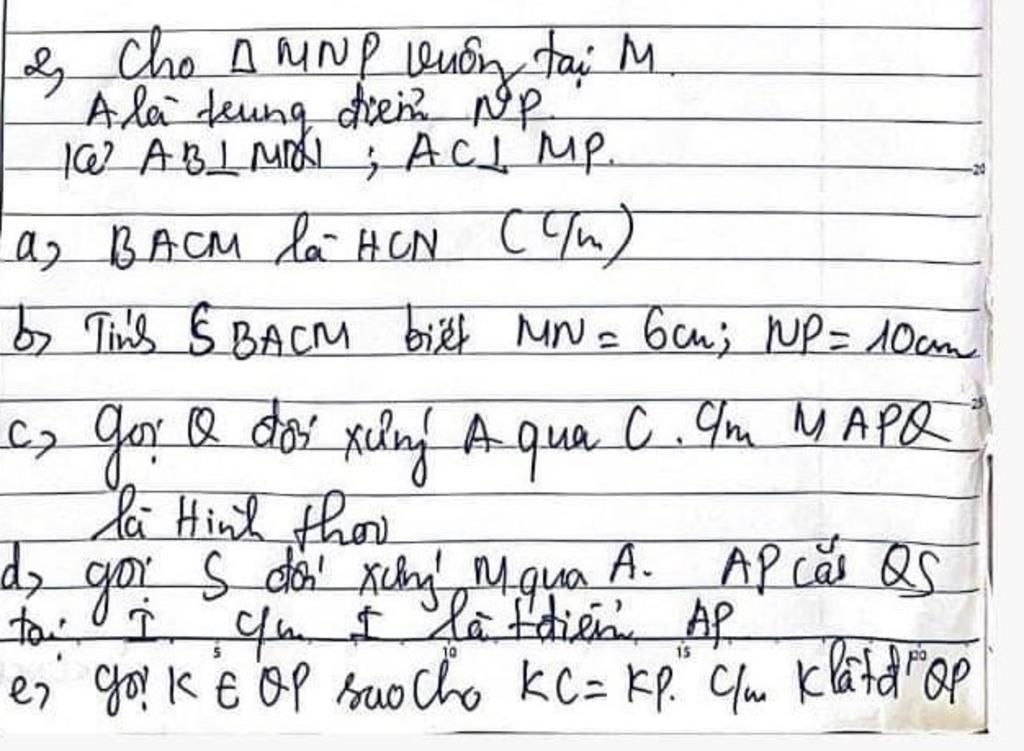 2, Cho Δ MNP vuông tại M.
A là trung điểm NP.
Kẻ AB⊥MN ; AC⊥ MP.
20
a, BACM là HCN (C/m)
b, Tính S BACM biết MN = 6cm; NP = 10cm
25
c, gọi Q đối xứng A qua C. C/m MAPQ
là Hình thoi
d, gọi S đối xứng M qua A. AP cắt QS
tại I C/m I là tđiểm AP
5 10 15 20
e, gọi K ∈ QP sao cho KC = KP. C/m K là tđ QP